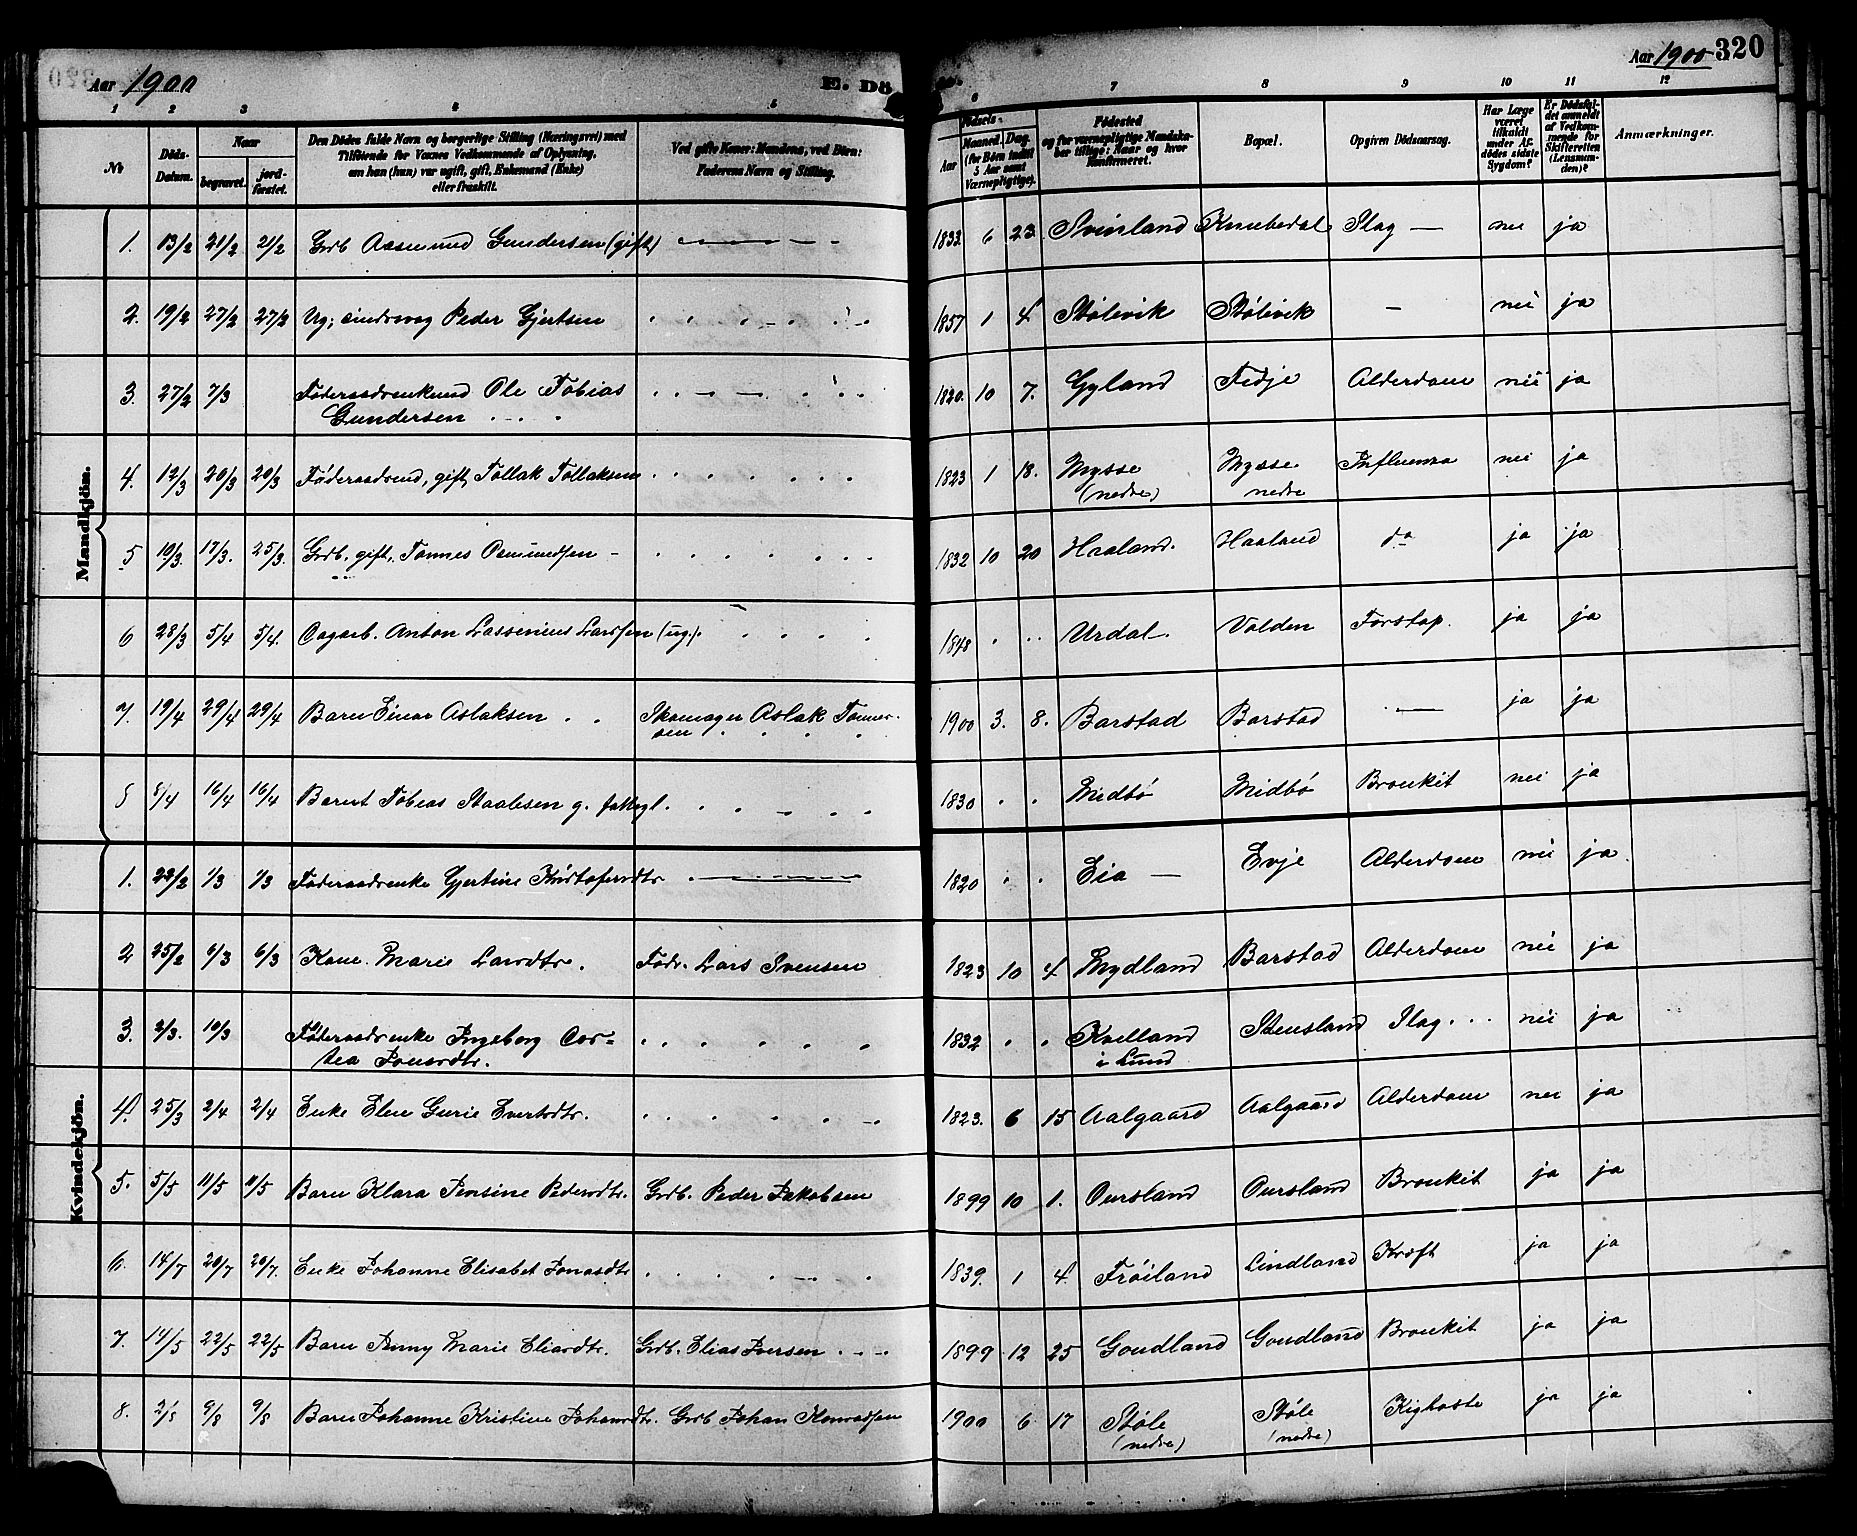 Aar 1900 E. Dö Aar 1900 320
1 2 3 4 5 6 7 8 9 10 11 12
No Döds-Datum. Naar begravet. jord-fæstet. Den Dödes fulde Navn og borgerlige Stilling (Næringsvei) med Tilföiende for Voxnes Vedkommende af Oplysning, om han (hun) var ugift, gift, Enkemand (Enke) eller fraskilt. Ved gifte Koner: Mandens, ved Börn: Faderens Navn og Stilling. Födsels- Aar Maaned. Dag. (for Börn indtil 5 Aar samt Værnepligtige). Födested og for værnepligtige Mandskaber tillige: Naar og hvor Konfirmeret. Bopæl. Opgiven Dödsaarsag. Har Læge været tilkaldt under Afdödes sidste Sygdom? Er Dödsfaldet anmeldt af Vedkommende for Skifteretten (Lensmanden)? Anmærkninger.
Mandkjön.
1. 13/2 21/2 21/2 Grdb Aasmund Gundersen (gift) 1832 6 23 Svinland Knubedal Slag — nei ja
2. 19/2 27/2 27/2 Ug; sindsvag Peder Gjertsen 1857 1 4 Stölevik Stölevik — nei ja
3. 27/2 7/3 Föderaadsenkemd Ole Tobias
Gundersen 1820. 10 7. Gyland Fedje Alderdom nei ja
4. 12/3 20/3 20/3 Föderaadmd, gift, Tollak Tollaksen 1823 1 18. Mysse
(nedre) Mysse
nedre Influenza nei ja
5 10/3. 17/3. 25/3. Grdb. gift, Tønnes Osmundsen - 1832 10 20 Haaland. Haaland do ja ja
6 28/3 5/4 5/4. Dagarb. Anton Lassenius Larssen (ug). 1848 Urdal. Valden Forstop. ja ja
7. 19/4 29/4 29/4 Barn Einar Aslaksen Skomager Aslak Tønnes-
sen 1900 3. 8. Barstad Barstad — ja ja
8 8/4 16/4 16/4 Berent Tobias Staalesen g. fattigl. 1830 Midbö Midbö Bronkit nei ja
Kvindekjön.
1. 22/2 1/3 1/3 Föderaadsenke Gjertine Kristofersdtr 1820 Eia — Evje Alderdom nei ja.
2 25/2 6/3 6/3 Kone. Marie Larsdtr. Födr. Lars Svensen 1823 10 4 Mydland Barstad Alderdom nei ja
3. 2/3. 10/3 Föderaadsenke Ingeborg Dor=
tea Jonasdtr. 1832 Kvelland
i Lund Stensland Slag... nei ja
4. 25/3 2/4 2/4 Enke Elen Gurie Evertsdtr. 1823. 6 15 Aalgaard Aalgaard Alderdom nei ja
5. 5/5 11/5 11/5 Barn Klara Jensine Pedersdtr. Grdb. Peder Jakobsen 1899 10 1. Oursland Oursland Bronkit ja ja
6. 14/7 20/7 20/7. Enke Johanne Elisabet Jonasdtr 1839. 1 4. Fröiland Lindland Kræft ja ja
7. 14/5 22/5 22/5 Barn Anny Marie Eliasdtr. Grdb. Elias Iversen 1899 12 25 Goudland Goudland Bronkit ja ja
8. 2/8 9/8 9/8 Barn Johanne Kristine Johansdtr. Grdb Johan Konradsen 1900 6 17 Støle
(nedre) Støle
(nedre) Kighoste ja ja